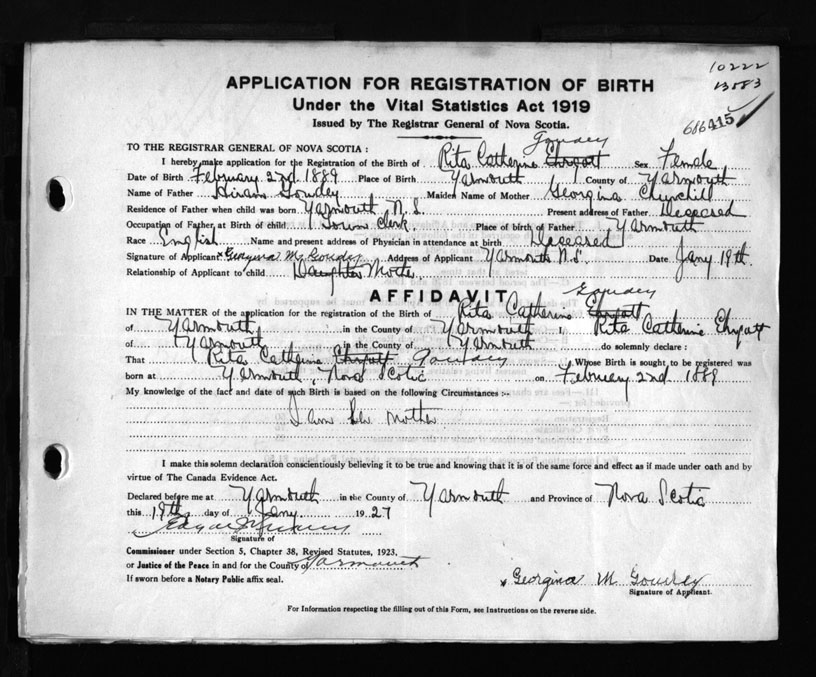 10222
13083
686415
APPLICATION FOR REGISTRATION OF BIRTH
Under the Vital Statistics Act 1919
Issued by The Registrar General of Nova Scotia.
TO THE REGISTRAR GENERAL OF NOVA SCOTIA :
Goudey
I hereby make application for the Registration of the Birth of Rita Catherine Sex Female
Date of Birth February 2nd 1889 Place of Birth Yarmouth County of Yarmouth
Name of Father Hiram Goudey Maiden Name of Mother Georgina Churchill
Residence of Father when child was born Yarmouth N.S. Present address of Father Deceased
Occupation of Father at Birth of child Town Clerk Place of birth of Father Yarmouth
Race English Name and present address of Physician in attendance at birth Deceased
Signature of Applicant x Georgina M. Goudey Address of Applicant Yarmouth N.S. Date Jany 19th.
Relationship of Applicant to child Daughter Mother
AFFIDAVIT
Goudey
IN THE MATTER of the application for the registration of the Birth of Rita Catherine
of Yarmouth in the County of Yarmouth I, Rita Catherine
of Yarmouth in the County of Yarmouth do solemnly declare :
That Rita Catherine Goudey Whose Birth is sought to be registered was
born at Yarmouth, Nova Scotia on February 2nd 1889
My knowledge of the fact and date of such Birth is based on the following Circumstances :-
I am her mother
I make this solemn declaration conscientiously believing it to be true and knowing that it is of the same force and effect as if made under oath and by
virtue of The Canada Evidence Act.
Declared before me at Yarmouth in the County of Yarmouth and Province of Nova Scotia
this 19th day of Jany. 1927
Signature of
Commissioner under Section 5, Chapter 38, Revised Statutes, 1923.
or Justice of the Peace in and for the County of Yarmouth
If sworn before a Notary Public affix seal.
x Georgina M Goudey
Signature of Applicant.
For Information respecting the filling out of this Form, see Instructions on the reverse side.